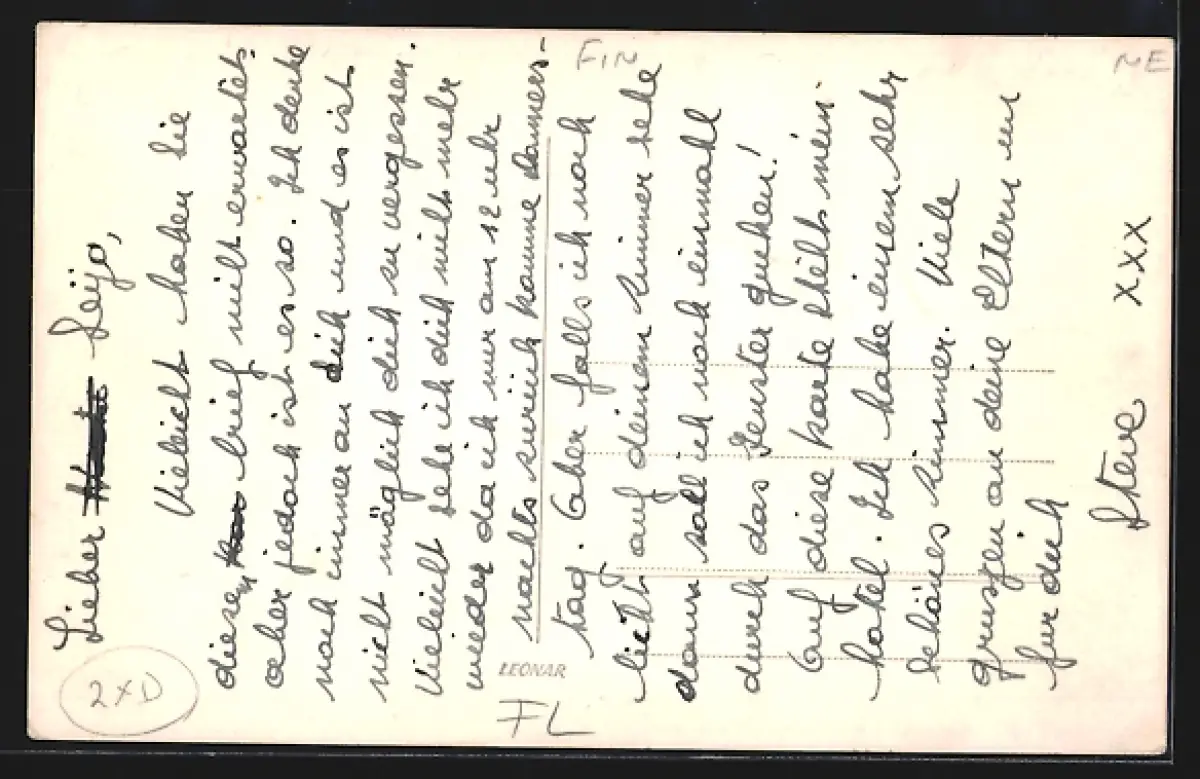 Lieber Seijo,
Vieleicht haben Sie
diesen brief nicht erwartet.
aber jedoch ist es so. Ich denke
noch immer an dich und es ist
nicht mäglich dich zu vergessen.
Vieleicht sehe ich dich nicht mehr
wieder da ich nur um 12 uhr
nachts zurück komme Donners-
tag. Aber falls ich noch
licht auf deinem zimmer sehe
dann soll ich noch einmahl
durch das Fenster guken!
Auf diese karte steht mein
hotel. Ich habe einem sehr
schönes zimmer. Viele
gruszen an deine Eltern und
fur dich
Steve XXX
2XD
FL
LEONAR
FIN
NE